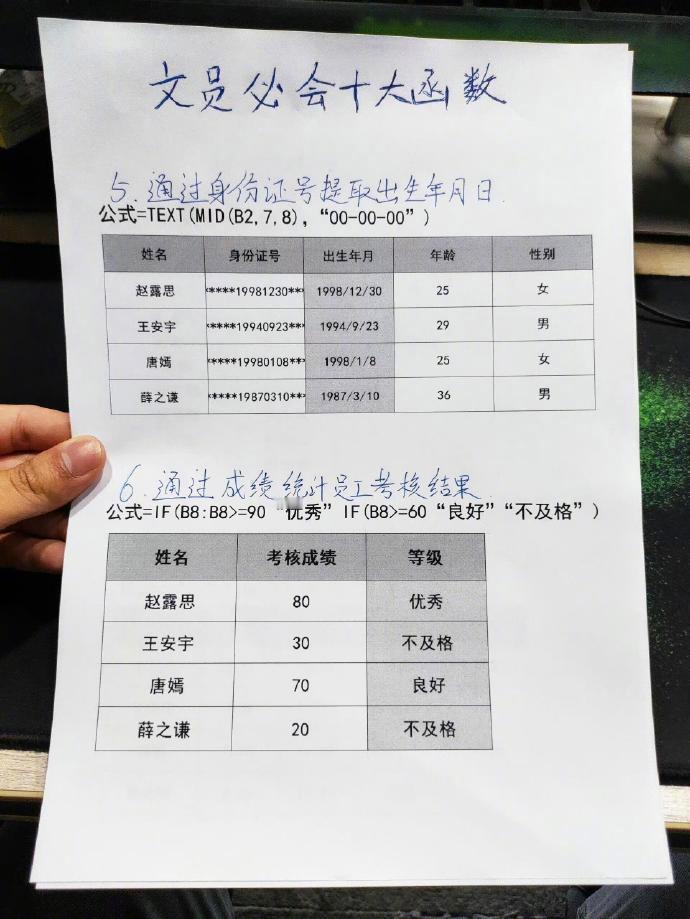 文员必会十大函数
5.通过身份证号提取出生年月日.
公式=TEXT(MID(B2,7,8),“00-00-00”)
姓名 身份证号 出生年月 年龄 性别
赵露思 *****19981230** 1998/12/30 25 女
王安宇 *****19940923** 1994/9/23 29 男
唐嫣 *****19980108** 1998/1/8 25 女
薛之谦 *****19870310** 1987/3/10 36 男
6.通过成绩统计员工考核结果.
公式=IF(B8:B8>=90“优秀”IF(B8>=60“良好”“不及格”)
姓名 考核成绩 等级
赵露思 80 优秀
王安宇 30 不及格
唐嫣 70 良好
薛之谦 20 不及格